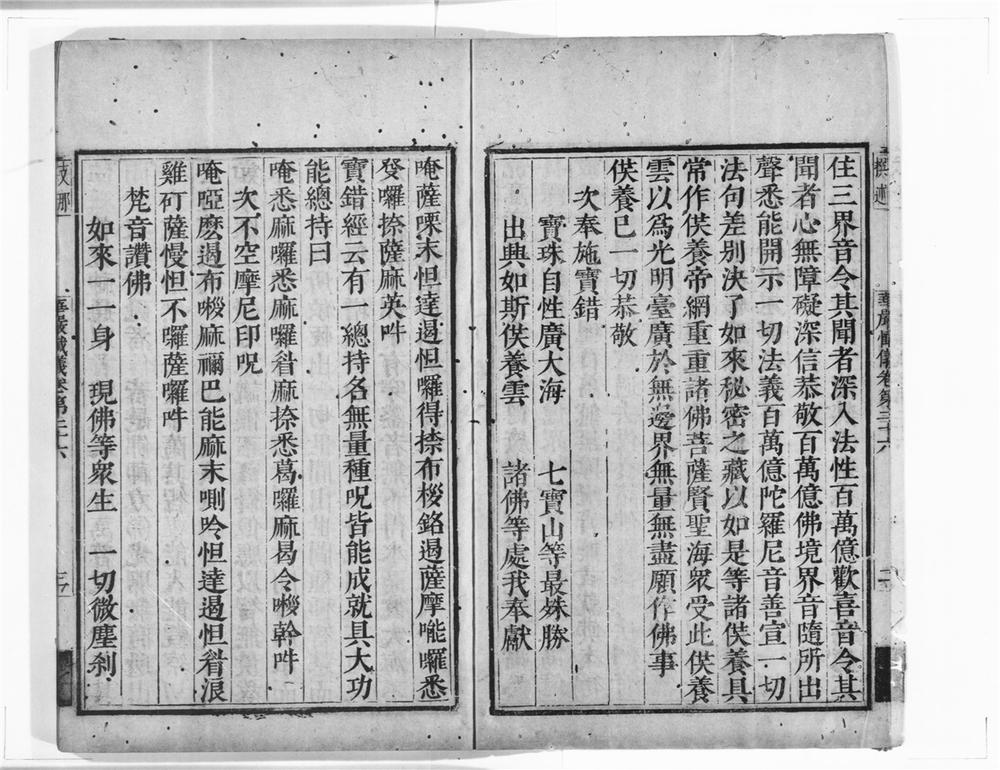 住三界音令其聞者深入法性百萬億歡喜音令其
聞者心無障礙深信恭敬百萬億佛境界音隨所出
聲悉能開示一切法義百萬億陀羅尼音善宣一切
法句差別決了如來秘密之藏以如是等諸供養具
常作供養帝網重重諸佛菩薩賢聖海眾受此供養
雲以爲光明臺廣於無邊界無量無盡願作佛事
供養已一切恭敬
次奉施寶錯
寶珠自性廣大海 七寶山等最姝勝
出興如斯供養雲 諸佛等處我奉獻
唵薩㗚末怛達遏怛囉得捺布𣑱銘遏薩摩㘄囉悉
癹囉捺薩麻英吽
寶錯經云有一總持名無量種呪皆能成就具大功
能總持曰
唵悉麻囉悉麻囉眥麻捺悉葛囉麻曷令𡄦幹吽
次不空摩尼印呪
唵啞麽遏布𡄦麻禰巴能麻末㗚唥怛達遏怛眥浪
雞矴薩慢怛不囉薩囉吽
梵音讚佛
如來一一身 現佛等衆生 一切微塵刹
華嚴懺儀卷第三十六
華嚴懺儀卷第三十六
撰述
支那